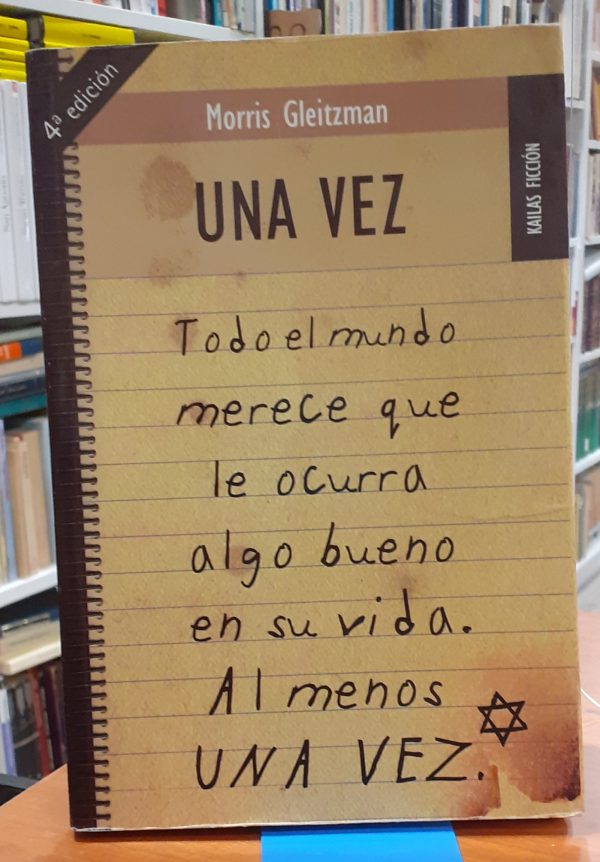 4ª edición
Morris Gleitzman
KAILAS FICCIÓN
UNA VEZ
Todo el mundo
merece que
le ocurra
algo bueno
en su vida.
Al menos
UNA VEZ.